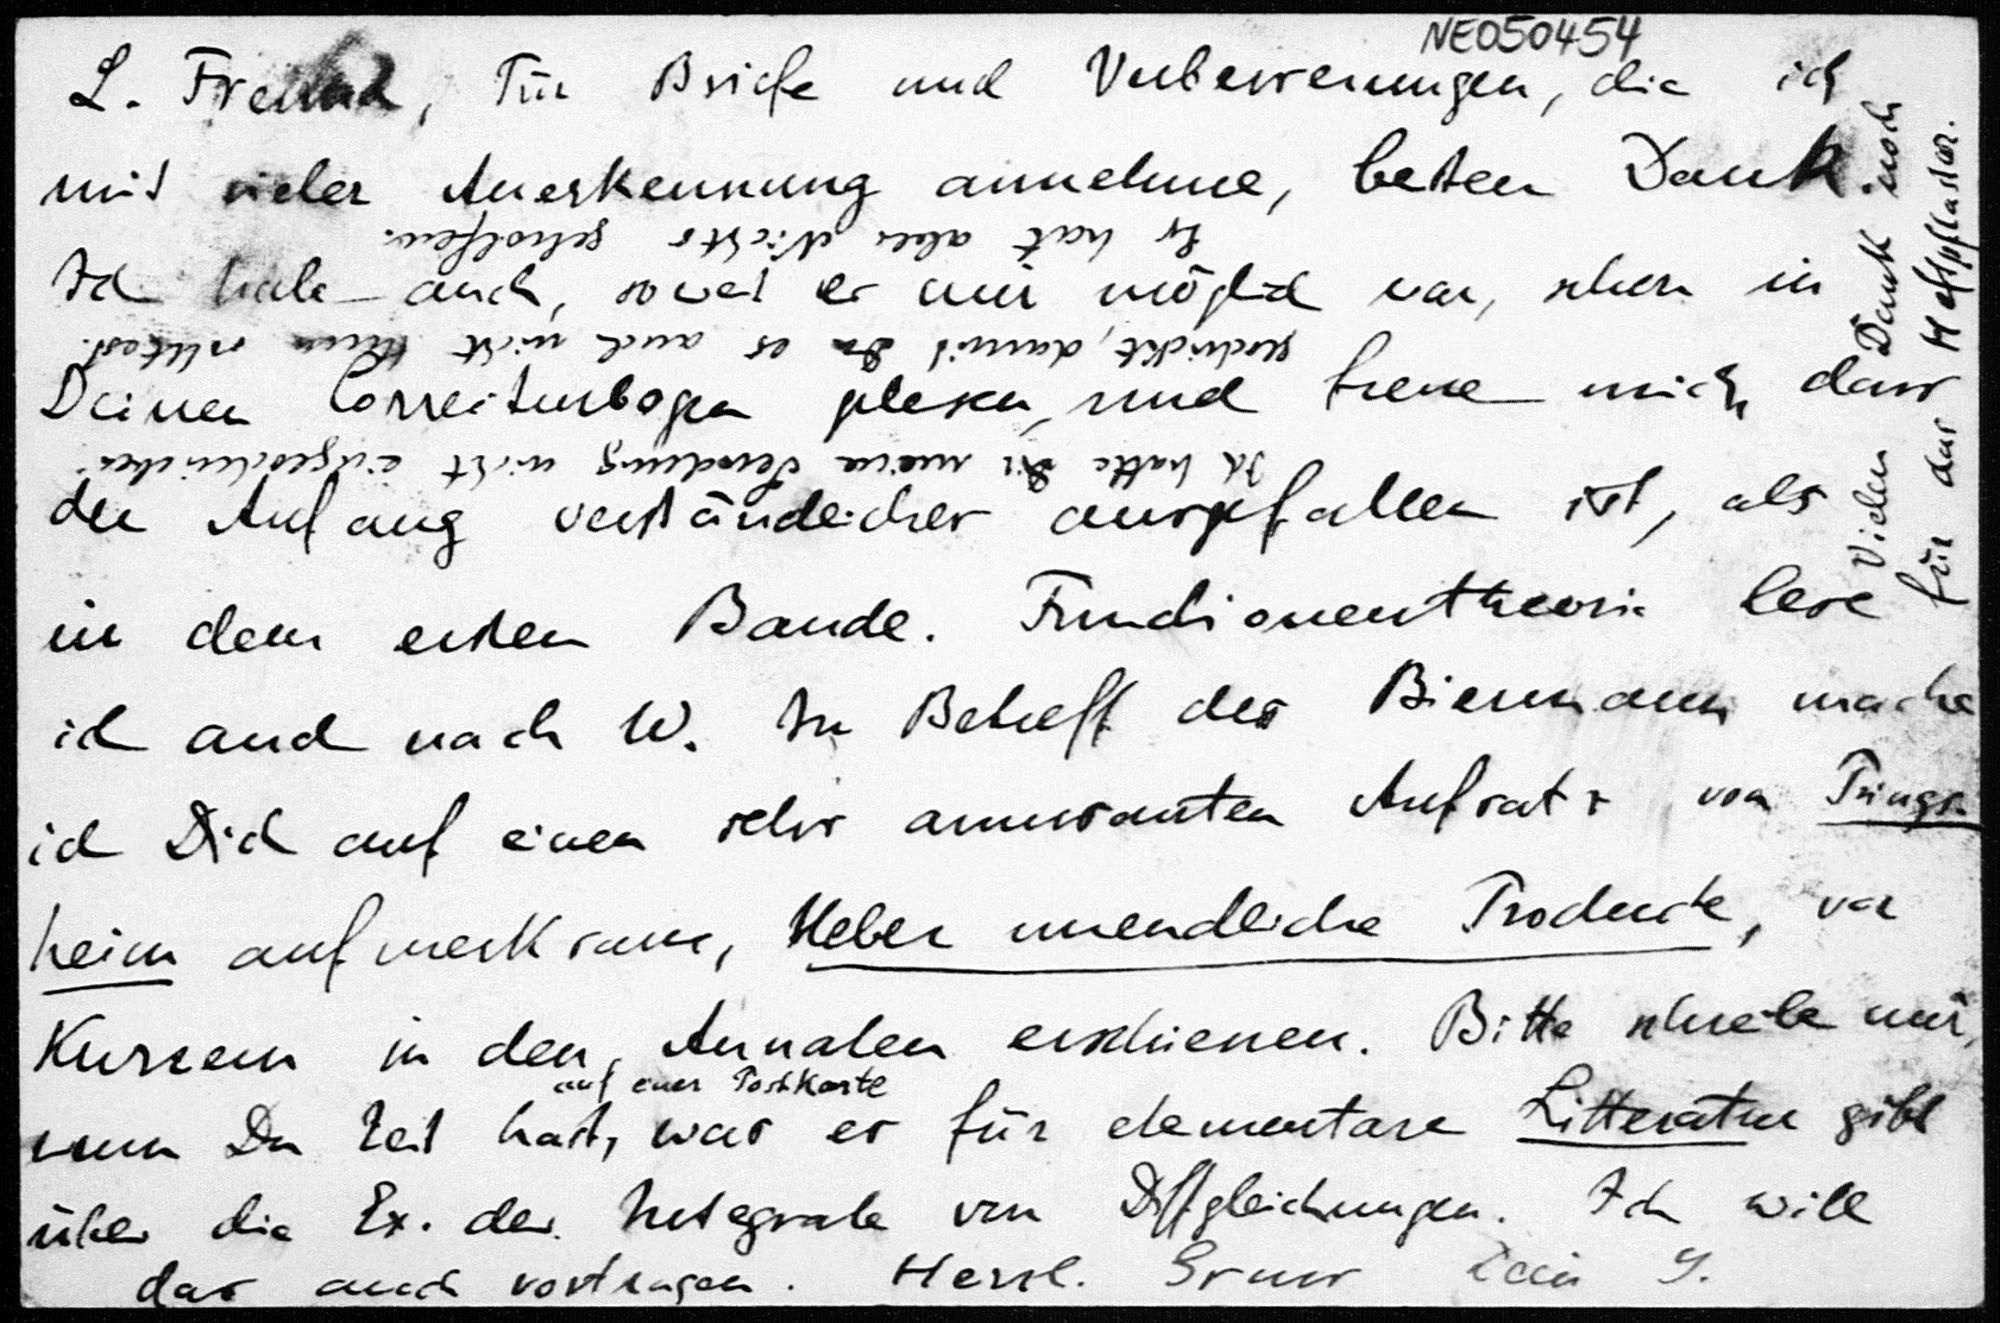 NE050454
L. Freund, Für Briefe und Verbesserungen, die ich
mit vieler Anerkennung annehme, besten Dank.
Ich habe auch, soweit es mir möglich war, schon in
Deinen Correcturbogen gelesen, und freue mich, dass
der Anfang verständlicher ausgefallen ist, als
in dem ersten Bande. Functionentheorie lese
ich auch nach W. In Betreff des Biermann mache
ich Dich auf einen sehr amusanten Aufsatz von Prings-
heim aufmerksam, Ueber unendliche Producte, vor
Kurzem in den Annalen erschienen. Bitte schreibe mir,
auf einer Postkarte
wenn Du Zeit hast, was es für elementare Litteratur gibt
über die Ex. der Integrale von Diffgleichungen. Ich will
das auch vortragen. Herzl. Gruss Dein G.
Ich hatte Dir meine Sendung nicht eingeschrieben
geschickt, damit Du es auch nicht thun solltest.
Es hat aber Nichts geholfen.
Vielen Dank noch
für das Heftpflaster.